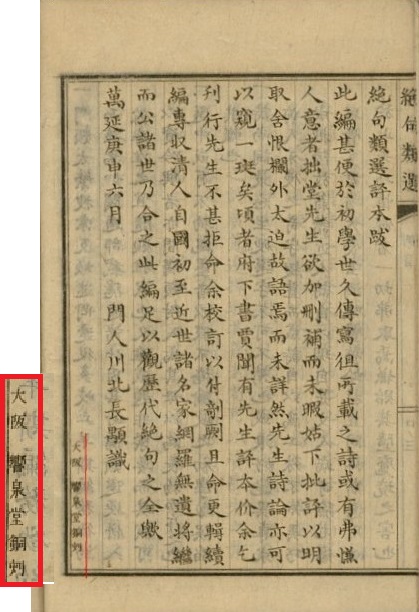 絶句類選
絶句類選評本跋
此編甚便於初學世久傳寫徂所載之詩或有弗慊
人意者拙堂先生欲加刪補而未暇姑下批評以明
取舍恨欄外太迫故語焉而未詳然先生詩論亦可
以窺一斑矣頃者府下書賈聞有先生評本价余乞
刊行先生不甚拒命余校訂以付剞劂且命更輯續
編專収清人自國初至近世諸名家網羅無遺將繼
而公諸世乃合之此編足以觀歷代絶句之全歟
萬延庚申六月 門人川北長顒識
大阪 響泉堂銅刻
大阪 響泉堂銅刻